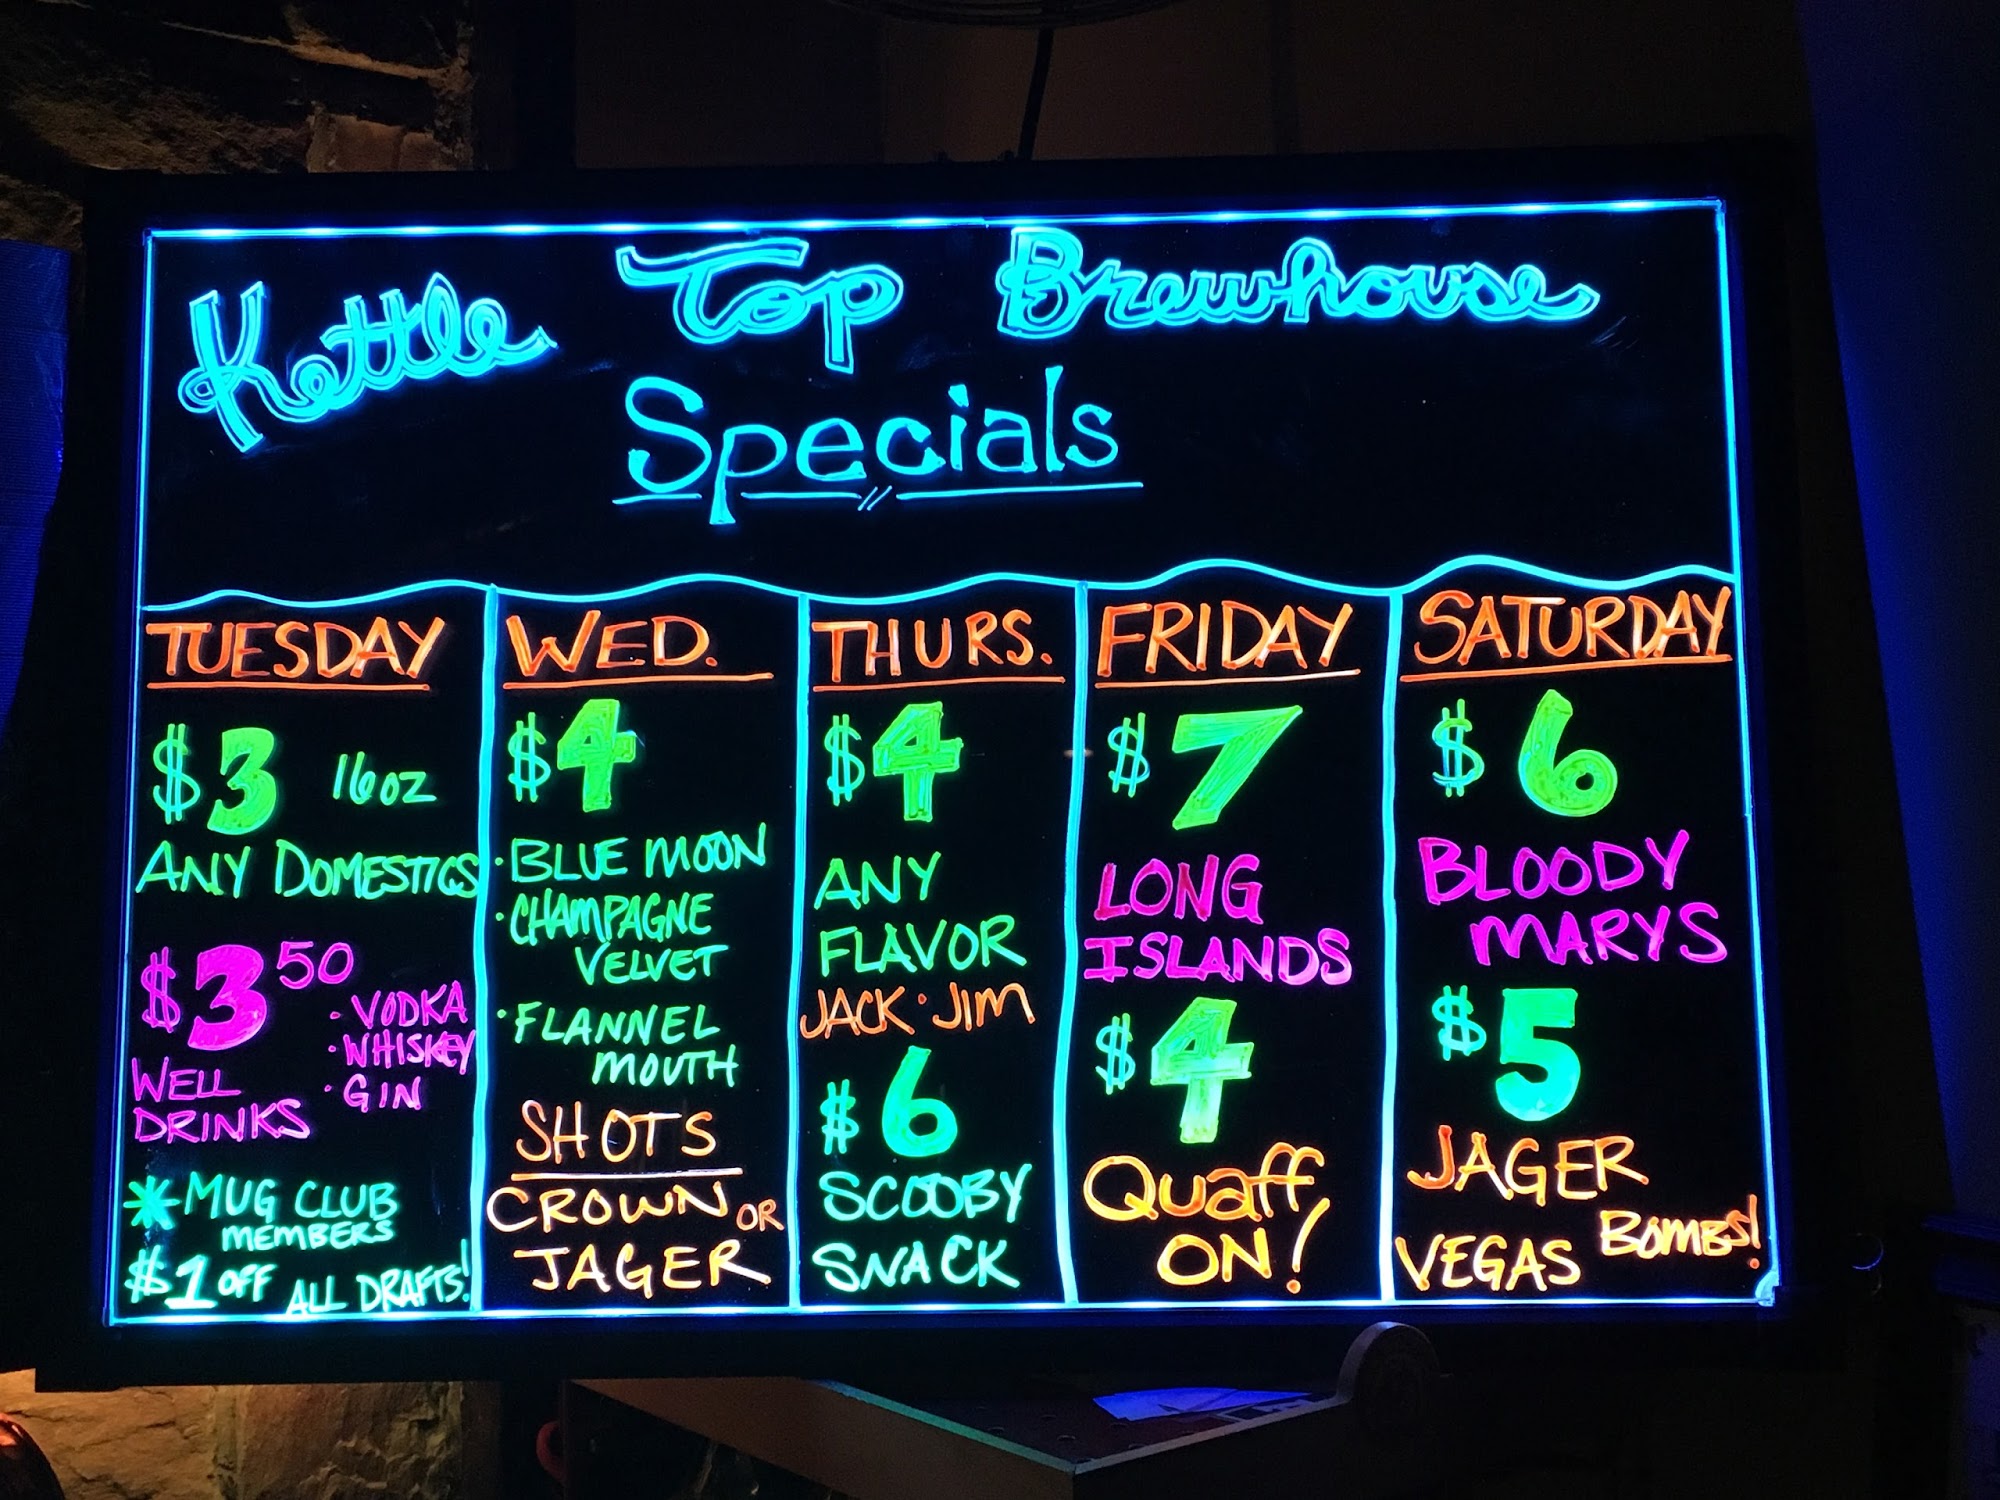 Kettle Top Brewhouse
Specials
TUESDAY
$3 16oz
ANY DOMESTICS
$3 50
WELL
DRINKS
· VODKA
· WHISKEY
· GIN
* MUG CLUB
MEMBERS
$1 OFF ALL DRAFTS!
WED.
$4
· BLUE MOON
· CHAMPAGNE
VELVET
· FLANNEL
MOUTH
SHOTS
CROWN OR
JAGER
THURS.
$4
ANY
FLAVOR
JACK · JIM
$6
SCOOBY
SNACK
FRIDAY
$7
LONG
ISLANDS
$4
Quaff
ON!
SATURDAY
$6
BLOODY
MARYS
$5
JAGER
VEGAS BOMBS!